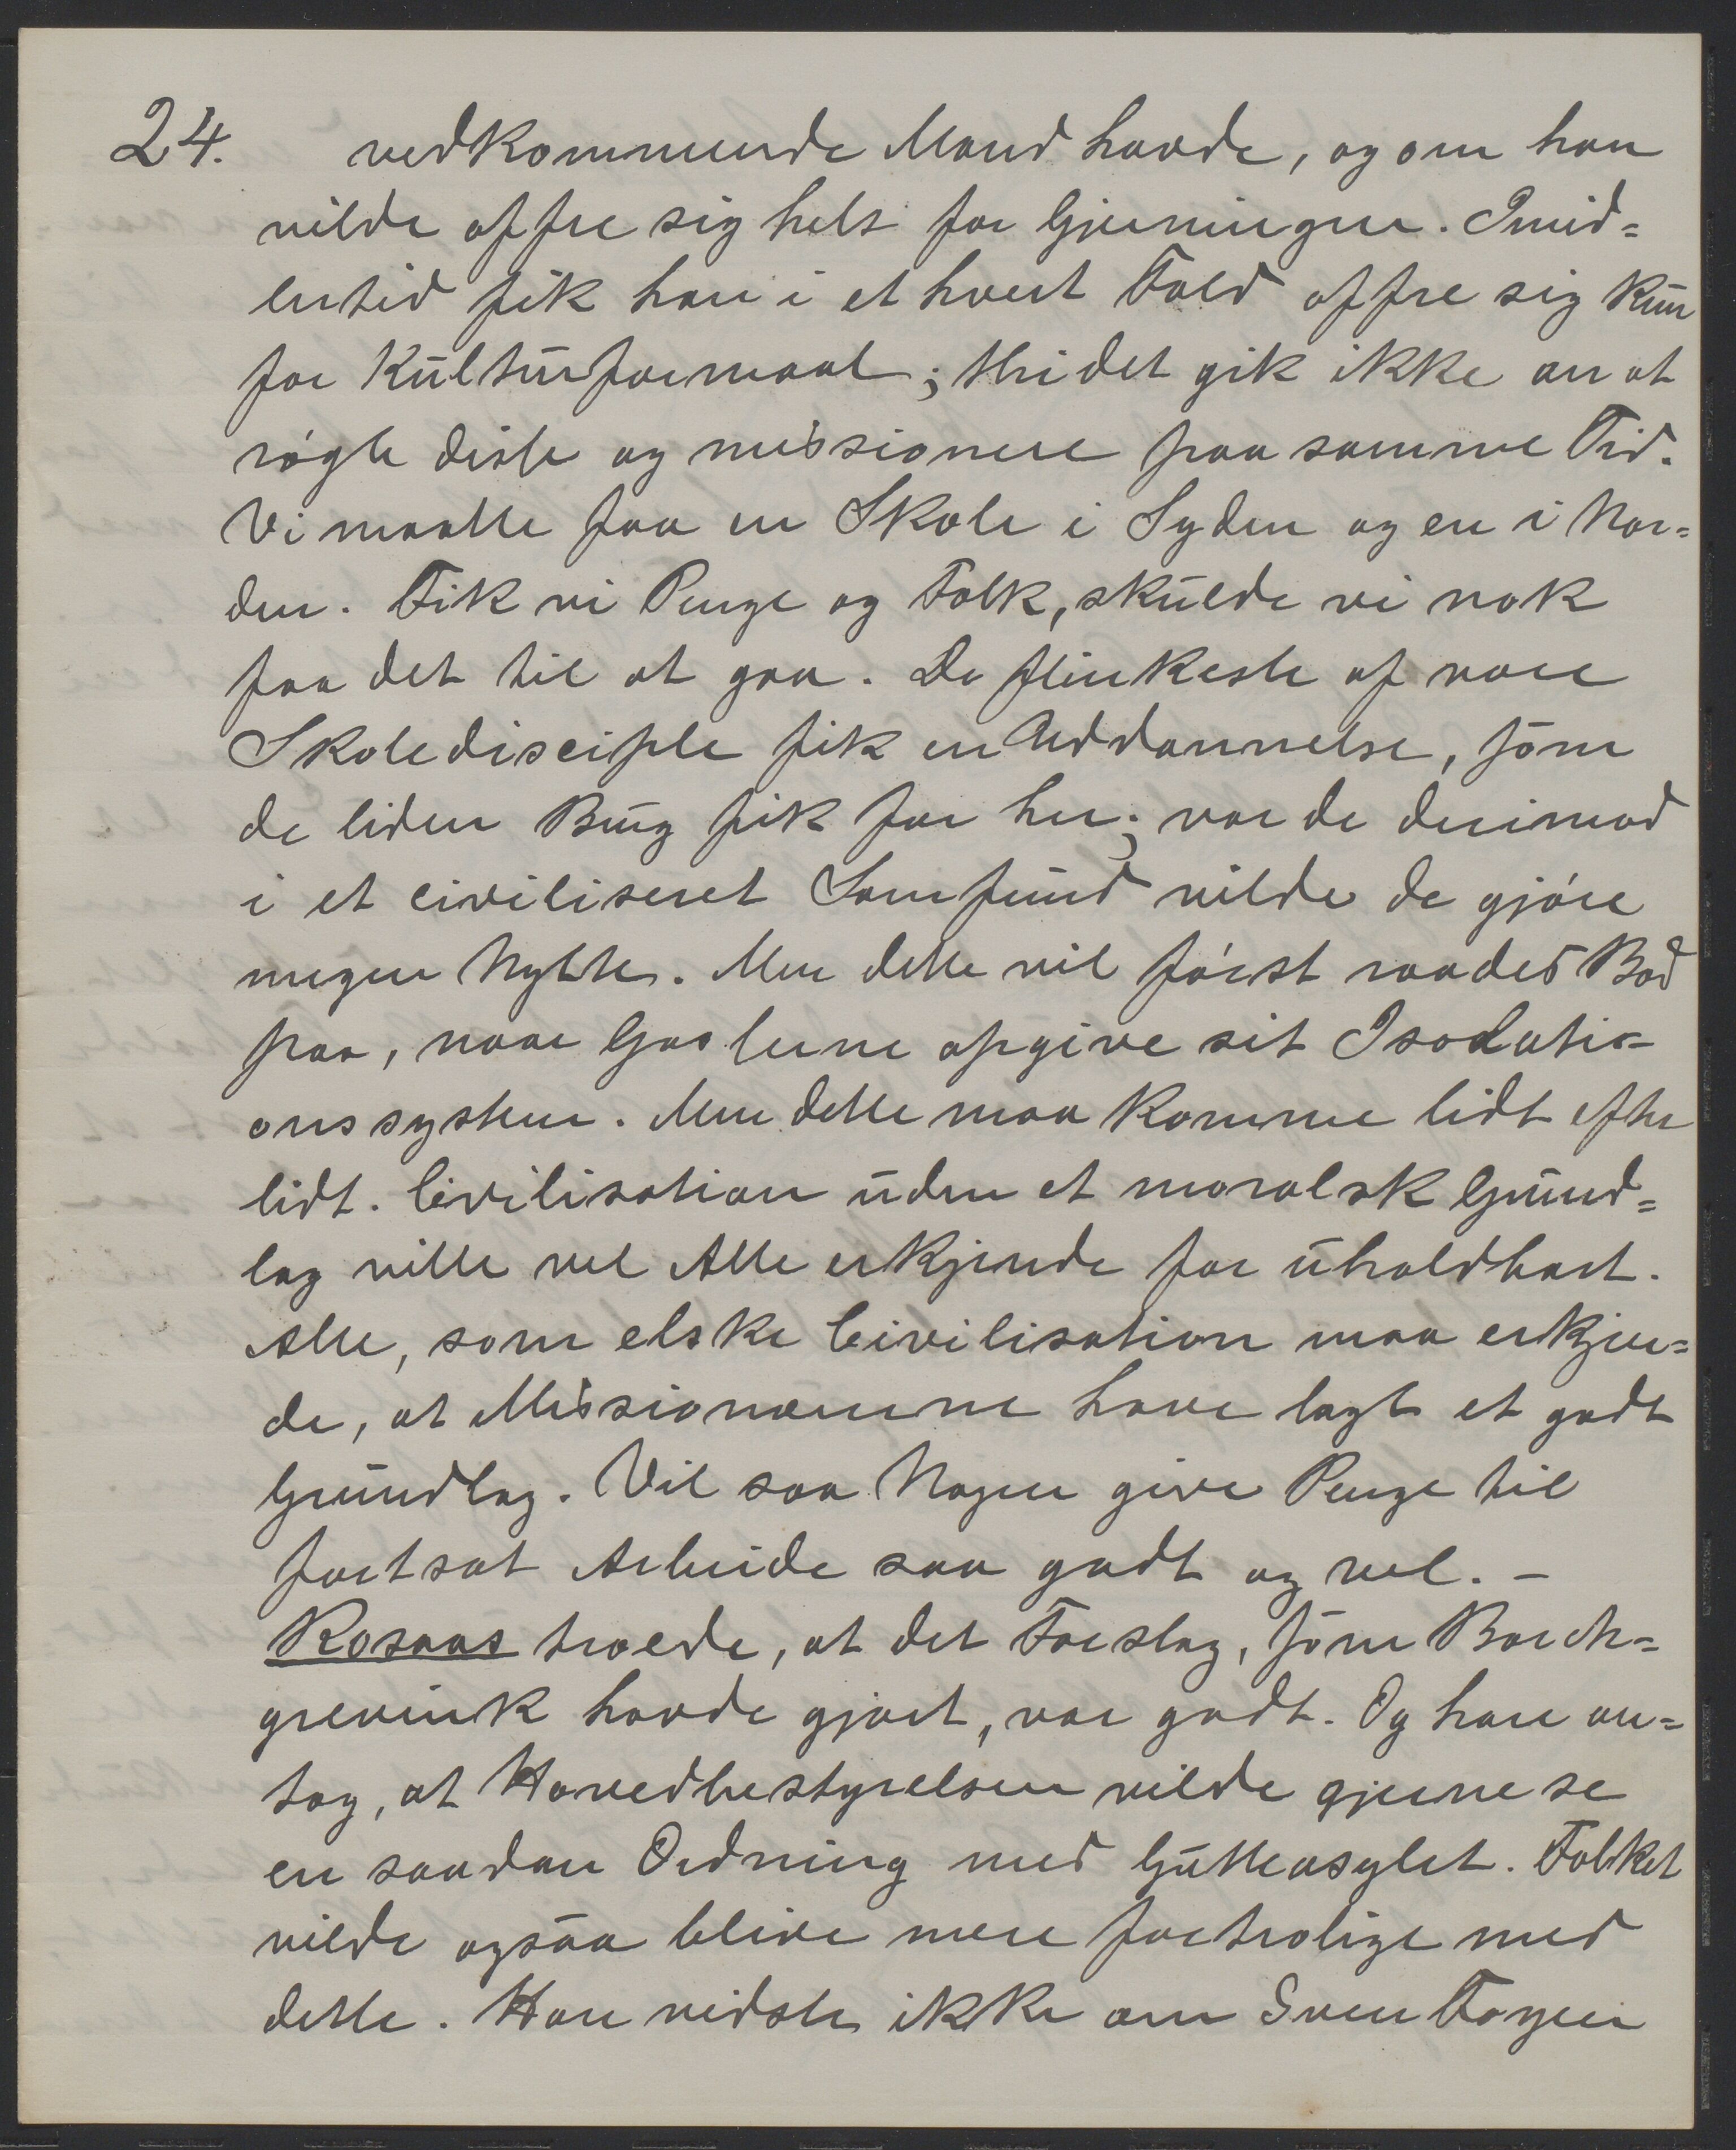 24. vedkommende Mand havde, og om han
vilde offre sig helt for Gjerningen. Imid=
lertid fik han i et hvert Fald offre sig kun
for Kulturformaal; thi det gik ikke an at
røgte disse og missionere paa samme Tid.
Vi maatte faa en Skole i Syden og en i Nor=
den. Fik vi Penge og Folk, skulde vi nok
faa det til at gaa. De flinkeste af vore
Skoledisciple fik en Uddannelse, som
de liden Brug fik for her; var de derimod
i et civiliseret Samfund vilde de gjøre
megen Nytte. Men dette vil først raades Bod
paa, naar Gasserne opgive sit Isolati=
onssystem. Men dette maa komme lidt efter
lidt. Civilisation uden et moralsk Grund=
lag ville vel Alle erkjende for uholdbart.
Alle, som elske Civilisation maa erkjen=
de, at Missionærerne have lagt et godt
Grundlag. Vil saa Nogen give Penge til
fortsat Arbeide saa godt og vel. –
Rosaas troede, at det Forslag, som Borch=
grevink havde gjort, var godt. Og han an=
tog, at Hovedbestyrelsen vilde gjerne se
en saadan Ordning med Gutteasylet. Folket
vilde ogsaa blive mere fortrolige med
dette. Han vidste ikke om Sven Foyen